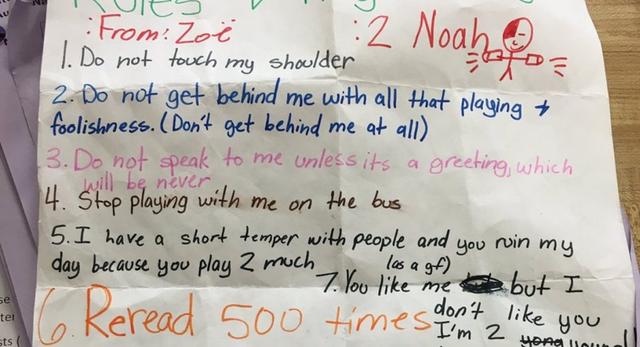 Rules
:From: Zoë
:2 Noah
1. Do not touch my shoulder
2. Do not get behind me with all that playing +
foolishness. (Don't get behind me at all)
3. Do not speak to me unless its a greeting, which
will be never
4. Stop playing with me on the bus
5. I have a short temper with people and you ruin my
day because you play 2 much
6. Reread 500 times
(as a gf)
7. You like me but I
don't like you
I'm 2